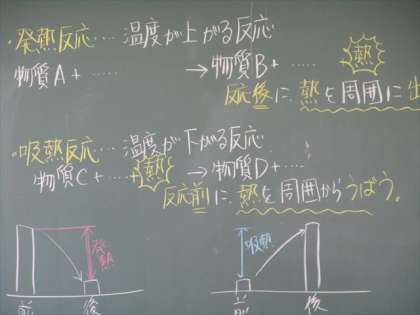 ・発熱反応‥‥温度が上がる反応
物質A＋‥‥‥→物質B＋‥‥熱
反応後に熱を周囲に出
・吸熱反応‥‥温度が下がる反応
物質C＋‥‥＋熱→物質D＋‥‥
反応前に熱を周囲からうばう。
発熱
吸熱
前 後
前 後